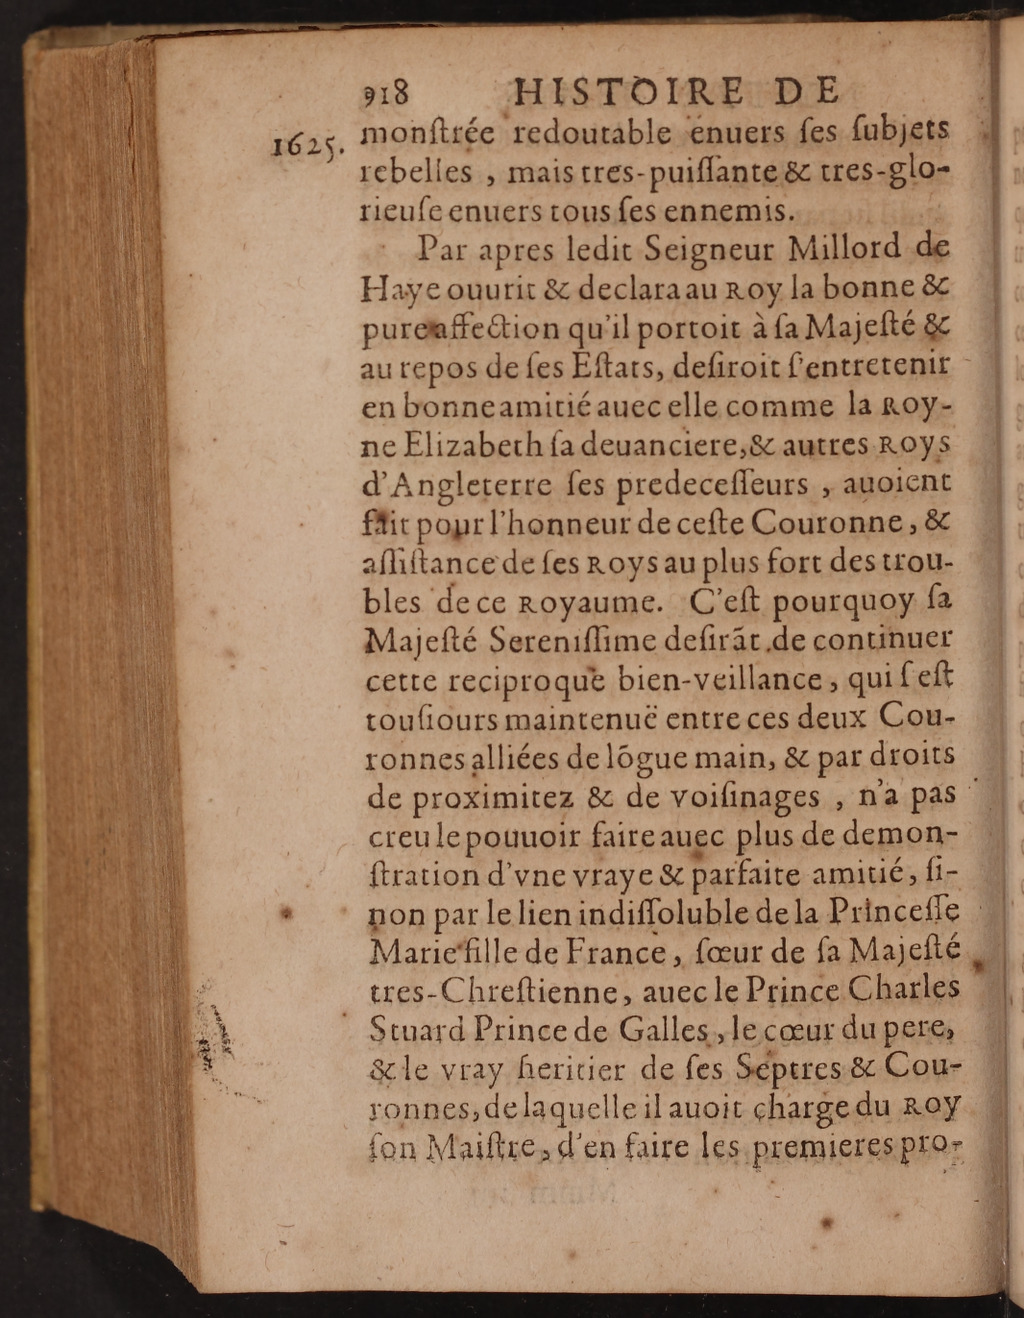 918 HISTOIRE DE
1625. monſtrée redoutable enuers ſes ſubjets
rebelles , mais tres-puiſſante & tres-glo-
rieuſe enuers tous ſes ennemis.
Par apres ledit Seigneur Millord de
Haye ouurit & declara au Roy la bonne &
pure affection qu'il portoit à ſa Majeſté &
au repos de ſes Eſtats, deſiroit ſ'entretenir
en bonne amitié auec elle comme la Roy-
ne Elizabeth ſa deuanciere, & autres Roys
d'Angleterre ſes predeceſſeurs , auoient
fait pour l'honneur de ceſte Couronne, &
aſſiſtance de ſes Roys au plus fort des trou-
bles de ce Royaume. C'eſt pourquoy ſa
Majeſté Sereniſſime deſirāt de continuer
cette reciproque bien-veillance, qui ſ'eſt
touſiours maintenuë entre ces deux Cou-
ronnes alliées de lōgue main, & par droits
de proximitez & de voiſinages , n'a pas
creu le pouuoir faire auec plus de demon-
ſtration d'vne vraye & parfaite amitié, ſi-
non par le lien indiſſoluble de la Princeſſe
Marie fille de France, ſœur de ſa Majeſté
tres-Chreſtienne, auec le Prince Charles
Stuard Prince de Galles, le cœur du pere,
& le vray heritier de ſes Septres & Cou-
ronnes, de laquelle il auoit charge du Roy
ſon Maiſtre, d'en faire les premieres pro-